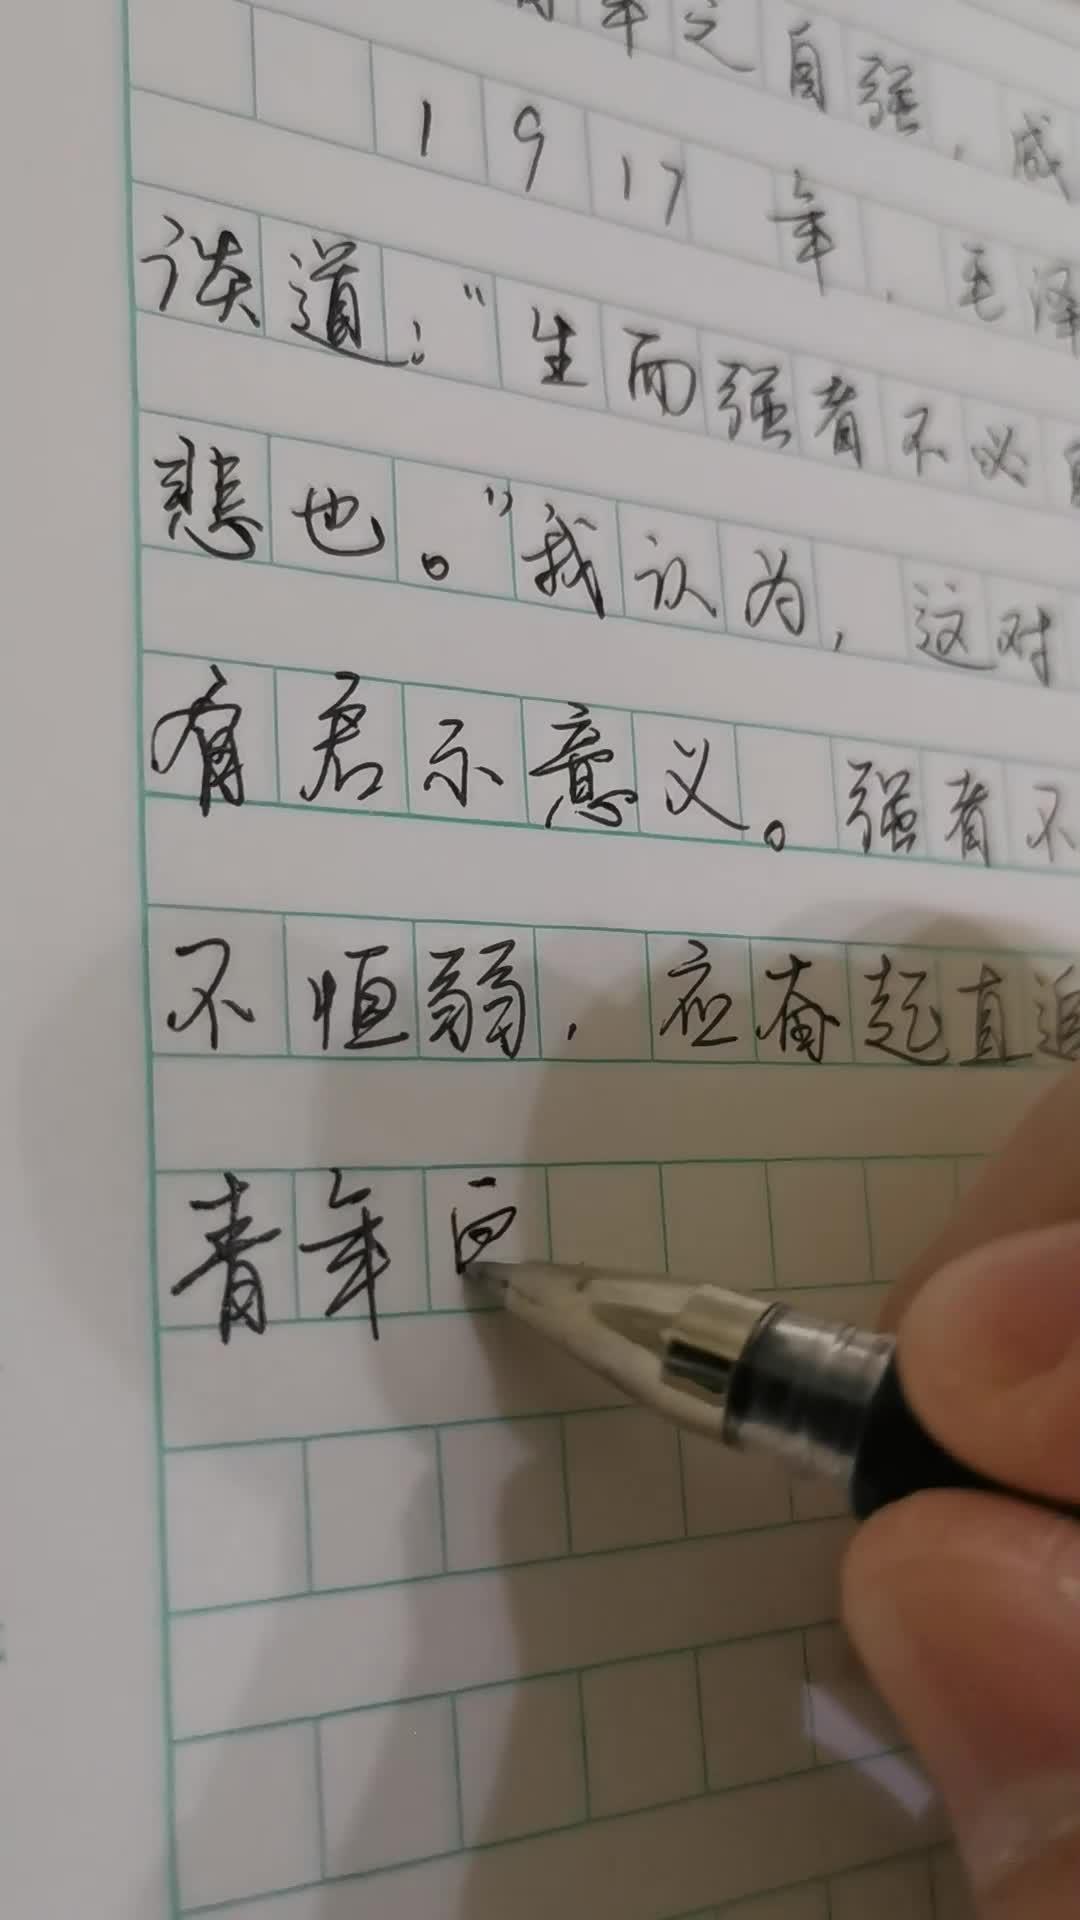 年之自强，咸
1917年，毛泽
谈道：“生而强者不必
悲也。”我认为，这对
有启示意义。强者不
不恒弱，应奋起直追
青年